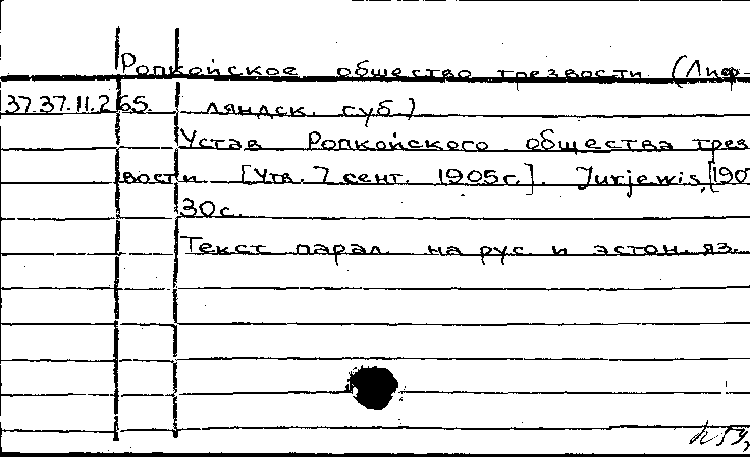 Ропкойское общество трезвости (Лиф
37.37.11.265. ляндск. губ.)
Устав Ропкойского общества трез
вости [Утв. 7 сент. 1905г.]. Jurjewis, [190
30с.
Текст парал. на рус. и эстон. яз.